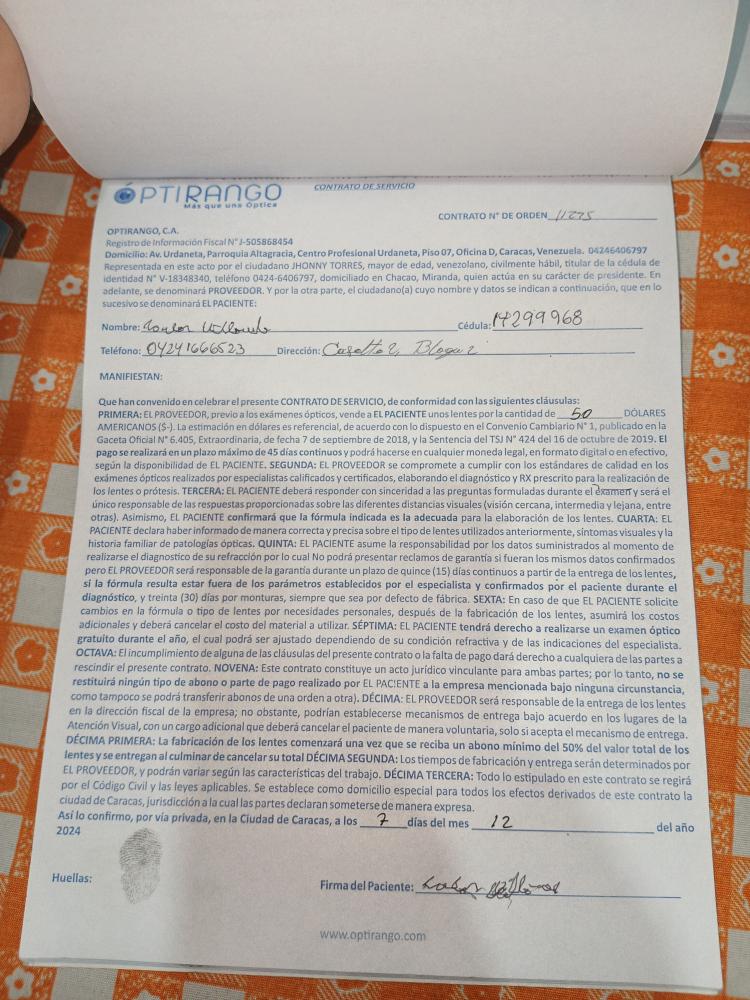 ÓPTIRANGO
Más que una Óptica
CONTRATO DE SERVICIO
CONTRATO N° DE ORDEN 11275
OPTIRANGO, C.A.
Registro de Información Fiscal N° J-505868454
Domicilio: Av. Urdaneta, Parroquia Altagracia, Centro Profesional Urdaneta, Piso 07, Oficina D, Caracas, Venezuela. 04246406797
Representada en este acto por el ciudadano JHONNY TORRES, mayor de edad, venezolano, civilmente hábil, titular de la cédula de
identidad N° V-18348340, teléfono 0424-6406797, domiciliado en Chacao, Miranda, quien actúa en su carácter de presidente. En
adelante, se denominará PROVEEDOR. Y por la otra parte, el ciudadano(a) cuyo nombre y datos se indican a continuación, que en lo
sucesivo se denominará EL PACIENTE:
Nombre: Cédula: 14299968
Teléfono: 04241666523 Dirección: Bloque 2
MANIFIESTAN:
Que han convenido en celebrar el presente CONTRATO DE SERVICIO, de conformidad con las siguientes cláusulas:
PRIMERA: EL PROVEEDOR, previo a los exámenes ópticos, vende a EL PACIENTE unos lentes por la cantidad de 50 DÓLARES
AMERICANOS ($-). La estimación en dólares es referencial, de acuerdo con lo dispuesto en el Convenio Cambiario N° 1, publicado en la
Gaceta Oficial N° 6.405, Extraordinaria, de fecha 7 de septiembre de 2018, y la Sentencia del TSJ N° 424 del 16 de octubre de 2019. El
pago se realizará en un plazo máximo de 45 días continuos y podrá hacerse en cualquier moneda legal, en formato digital o en efectivo,
según la disponibilidad de EL PACIENTE. SEGUNDA: EL PROVEEDOR se compromete a cumplir con los estándares de calidad en los
exámenes ópticos realizados por especialistas calificados y certificados, elaborando el diagnóstico y RX prescrito para la realización de
los lentes o prótesis. TERCERA: EL PACIENTE deberá responder con sinceridad a las preguntas formuladas durante el examen y será el
único responsable de las respuestas proporcionadas sobre las diferentes distancias visuales (visión cercana, intermedia y lejana, entre
otras). Asimismo, EL PACIENTE confirmará que la fórmula indicada es la adecuada para la elaboración de los lentes. CUARTA: EL
PACIENTE declara haber informado de manera correcta y precisa sobre el tipo de lentes utilizados anteriormente, síntomas visuales y la
historia familiar de patologías ópticas. QUINTA: EL PACIENTE asume la responsabilidad por los datos suministrados al momento de
realizarse el diagnostico de su refracción por lo cual No podrá presentar reclamos de garantía si fueran los mismos datos confirmados
pero EL PROVEEDOR será responsable de la garantía durante un plazo de quince (15) días continuos a partir de la entrega de los lentes,
si la fórmula resulta estar fuera de los parámetros establecidos por el especialista y confirmados por el paciente durante el
diagnóstico, y treinta (30) días por monturas, siempre que sea por defecto de fábrica. SEXTA: En caso de que EL PACIENTE solicite
cambios en la fórmula o tipo de lentes por necesidades personales, después de la fabricación de los lentes, asumirá los costos
adicionales y deberá cancelar el costo del material a utilizar. SÉPTIMA: EL PACIENTE tendrá derecho a realizarse un examen óptico
gratuito durante el año, el cual podrá ser ajustado dependiendo de su condición refractiva y de las indicaciones del especialista.
OCTAVA: El incumplimiento de alguna de las cláusulas del presente contrato o la falta de pago dará derecho a cualquiera de las partes a
rescindir el presente contrato. NOVENA: Este contrato constituye un acto jurídico vinculante para ambas partes; por lo tanto, no se
restituirá ningún tipo de abono o parte de pago realizado por EL PACIENTE a la empresa mencionada bajo ninguna circunstancia,
como tampoco se podrá transferir abonos de una orden a otra). DÉCIMA: EL PROVEEDOR será responsable de la entrega de los lentes
en la dirección fiscal de la empresa; no obstante, podrían establecerse mecanismos de entrega bajo acuerdo en los lugares de la
Atención Visual, con un cargo adicional que deberá cancelar el paciente de manera voluntaria, solo si acepta el mecanismo de entrega.
DÉCIMA PRIMERA: La fabricación de los lentes comenzará una vez que se reciba un abono mínimo del 50% del valor total de los
lentes y se entregan al culminar de cancelar su total DÉCIMA SEGUNDA: Los tiempos de fabricación y entrega serán determinados por
EL PROVEEDOR, y podrán variar según las características del trabajo. DÉCIMA TERCERA: Todo lo estipulado en este contrato se regirá
por el Código Civil y las leyes aplicables. Se establece como domicilio especial para todos los efectos derivados de este contrato la
ciudad de Caracas, jurisdicción a la cual las partes declaran someterse de manera expresa.
Así lo confirmo, por vía privada, en la Ciudad de Caracas, a los 7 días del mes 12 del año
2024
Huellas:
Firma del Paciente:
www.optirango.com